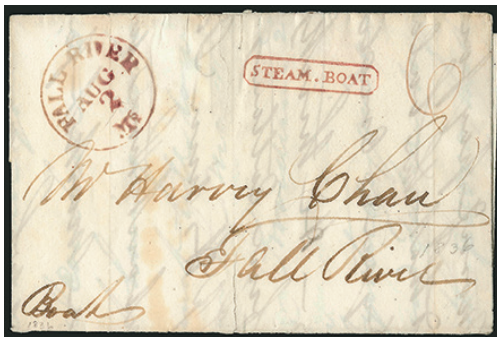 FALL RIVER Ms
AUG
2
STEAM.BOAT
6
Mr Harvey Chace
Fall River
1836
Boat
1836